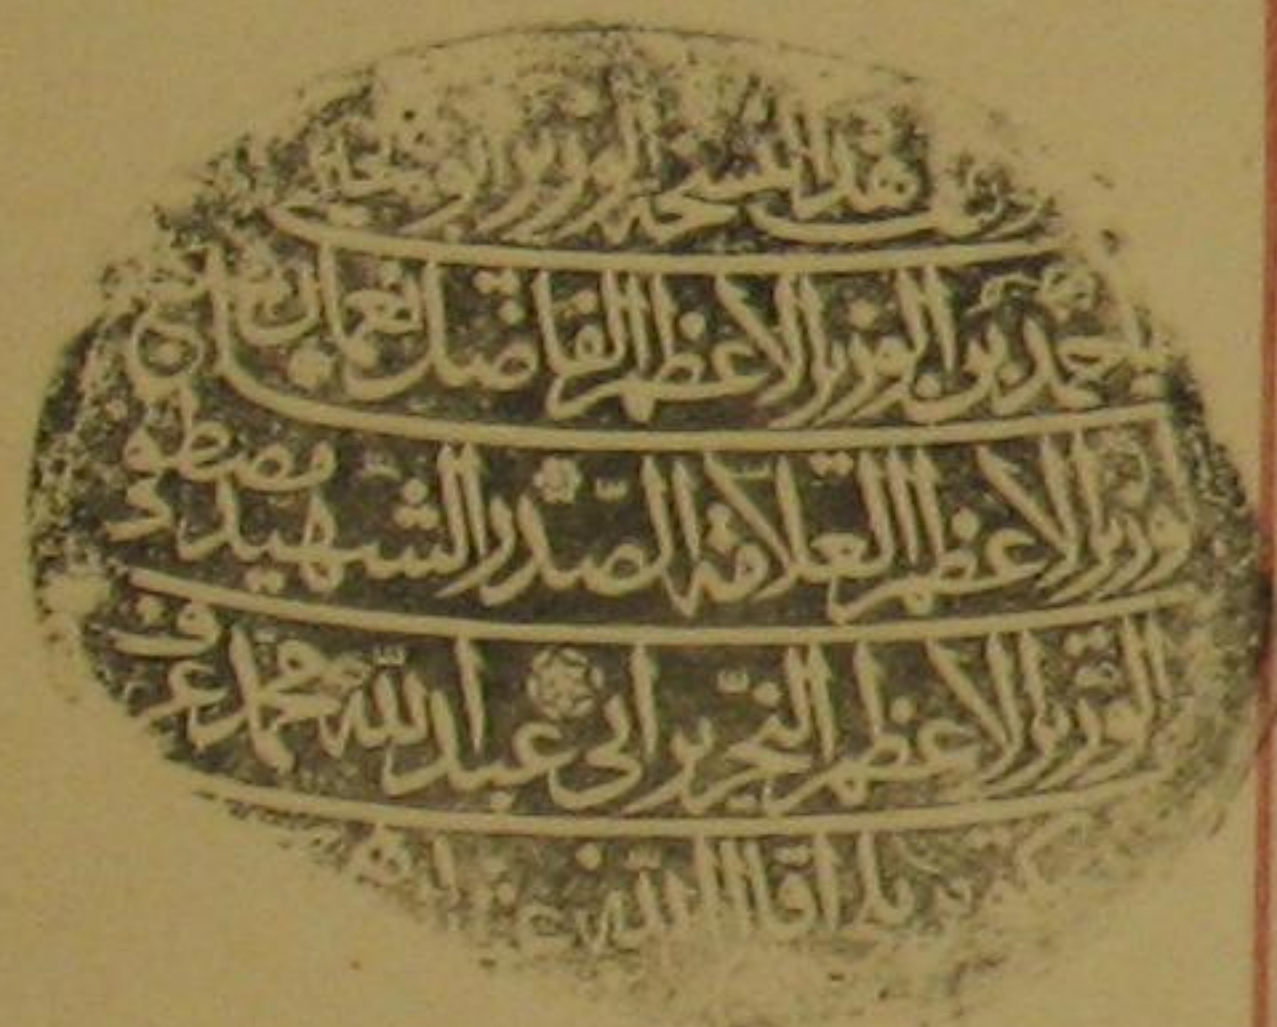 وقف هذه النسخة الوزير ابو الخير
احمد بن الوزير الاعظم الفاضل نعمان بن
الوزير الاعظم العلامة الصدر الشهيد مصطفى
الوزير الاعظم النحرير ابي عبد الله محمد عرف
بكوپريلى اقال الله